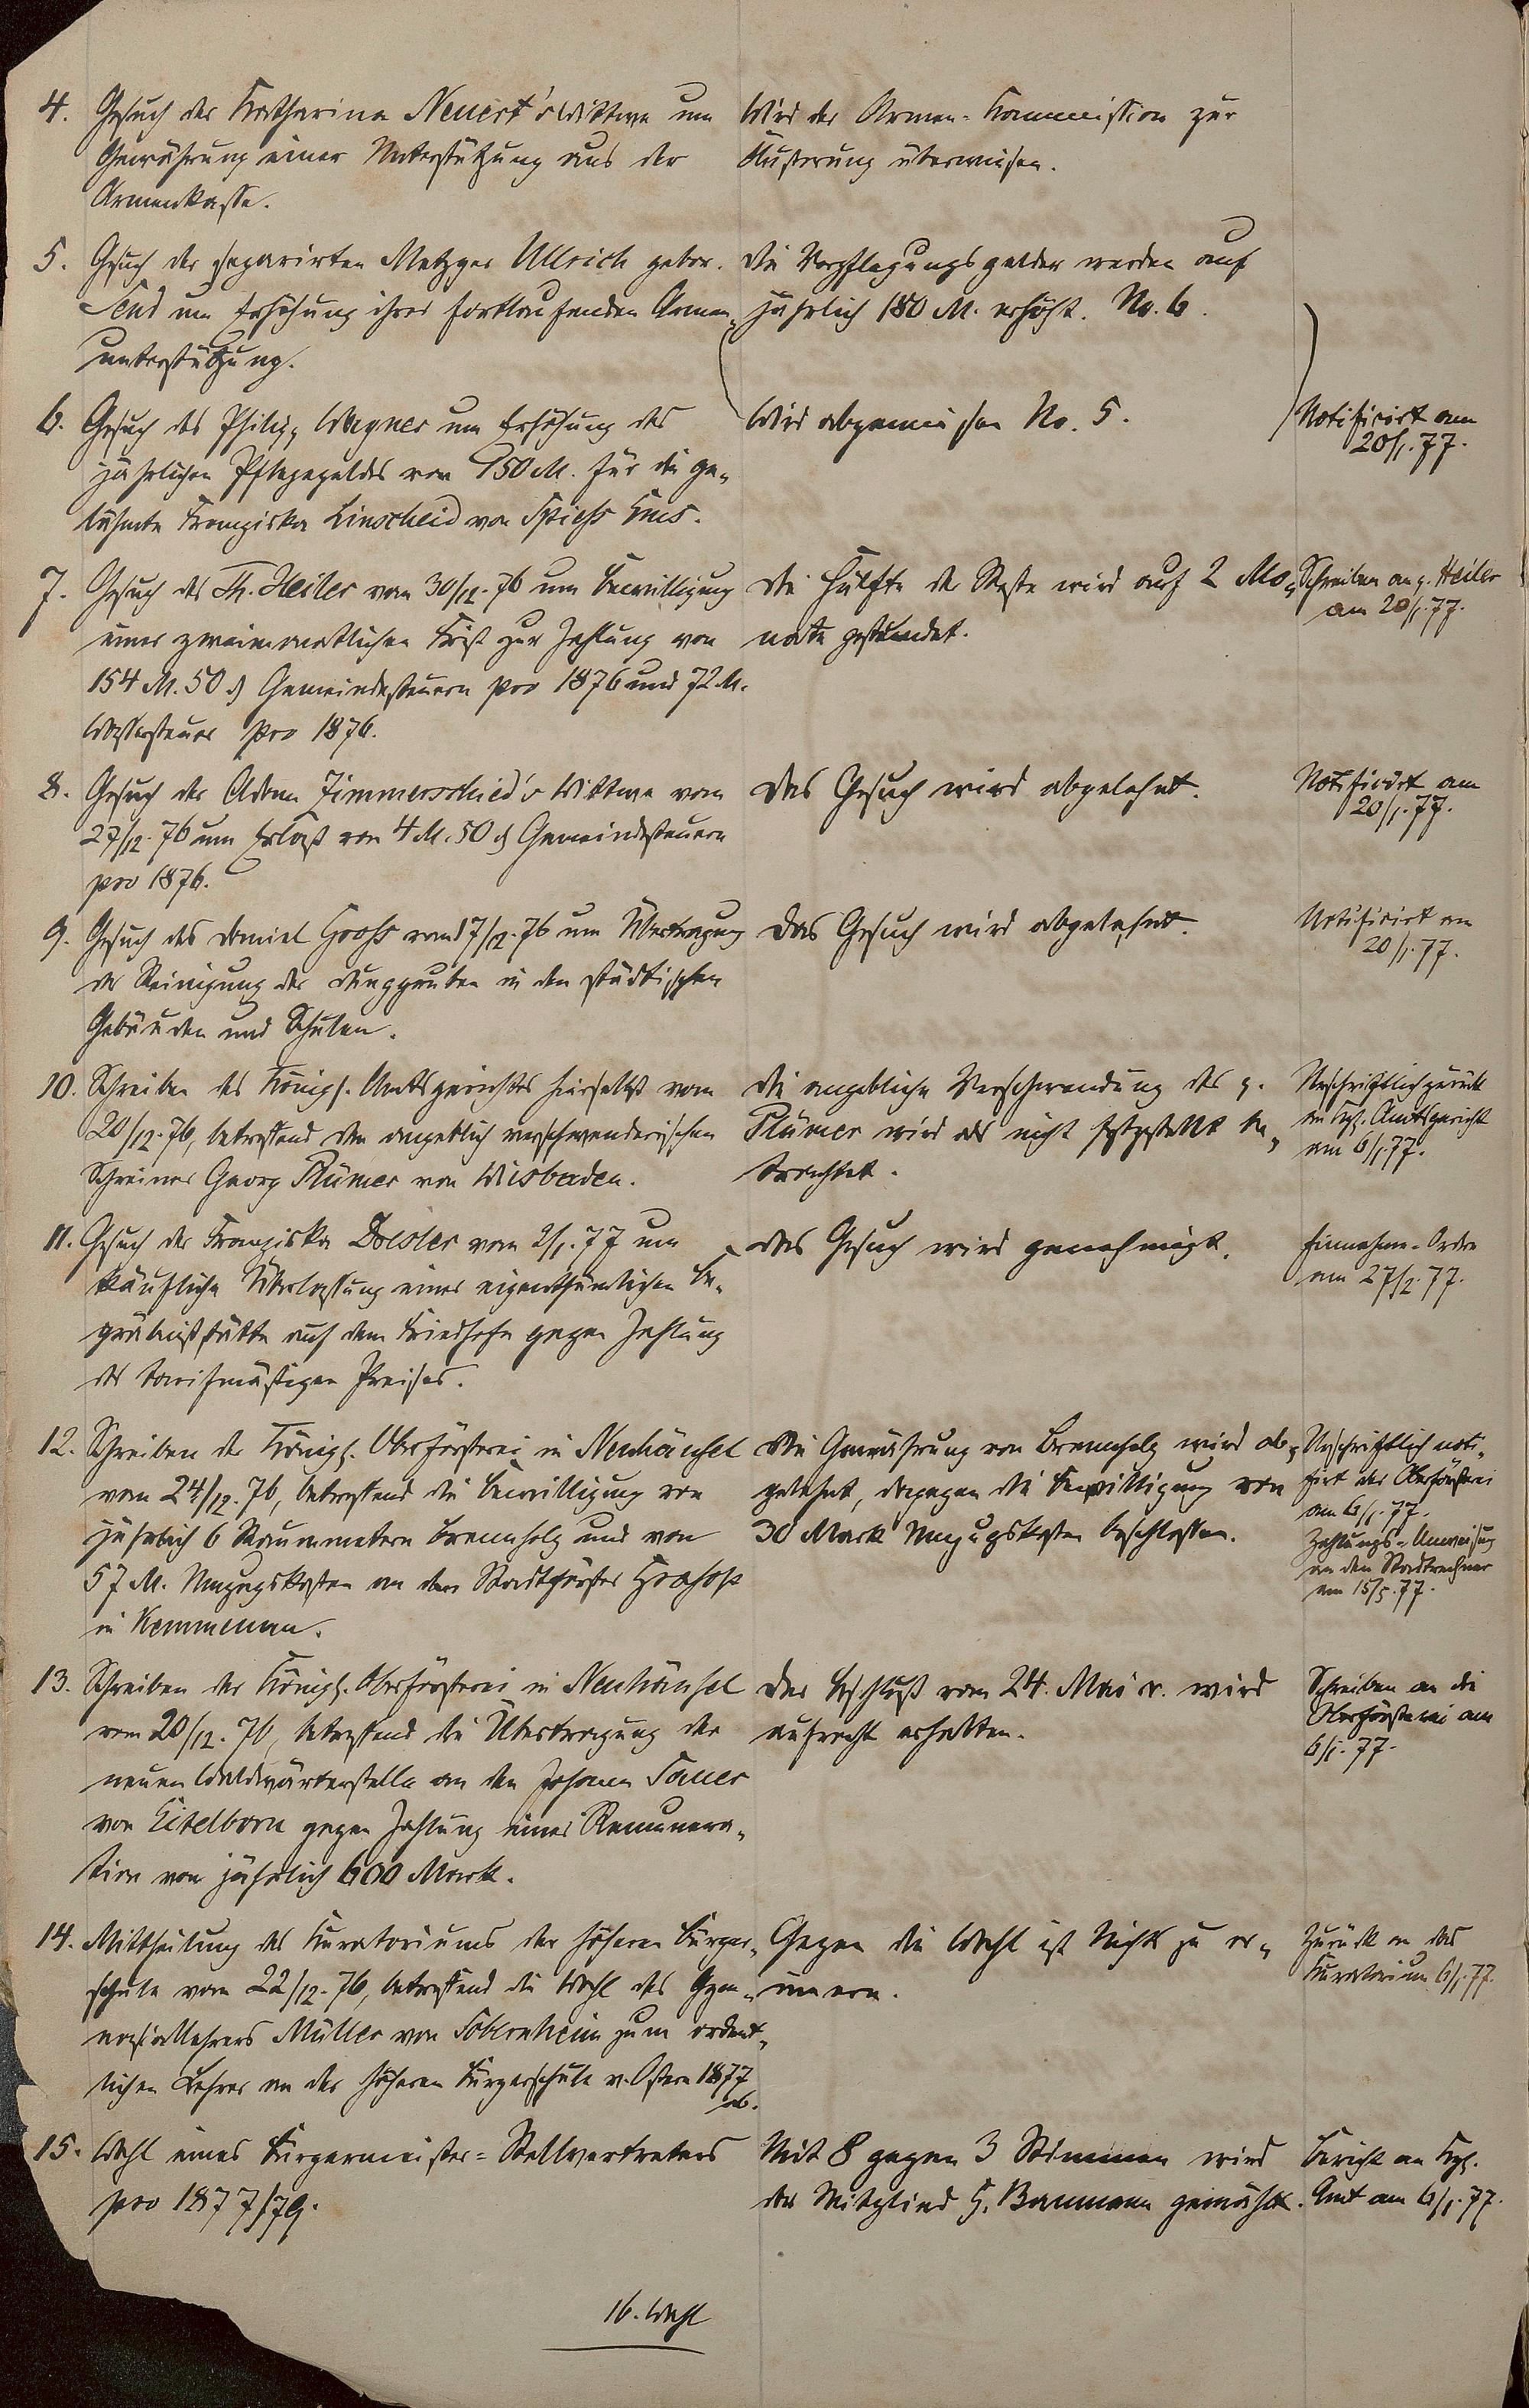 4. Gesuch der Katharina Neuert's Wittwe um
Gewährung einer Unterstützung aus der
Armenkasse.
Wird der Armen-Kommission zur
Äußerung überwiesen.
5. Gesuch der separirten Metzger Ullrich gebor.
um Erhöhung ihrer fortlaufenden Armen-
unterstützung.
Die Verpflegungsgelder werden auf
jährlich 180 M. erhöht. No. 6.
6. Gesuch des Philip Wagner um Erhöhung des
jährlichen Pflegegeldes von 150 M. für die ge-
lähmte Franziska Linscheid von Spieß Ems.
Wird abgewiesen No. 5.
Notificirt am
20/1. 77.
7. Gesuch des Th. Heiler vom 30/12. 76 um Bewilligung
einer zweimonatlichen Frist zur Zahlung von
154 M. 50 ₰ Gemeindesteuern pro 1876 und 72 M.
Wassersteuer pro 1876.
Die Hälfte der Reste wird auf 2 Mo-
nate gestundet.
Schreiben an p. Heiler
am 20/1. 77.
8. Gesuch der Adam Zimmerschied's Wittwe vom
27/12. 76 um Erlaß von 4 M. 50 ₰ Gemeindesteuern
pro 1876.
Das Gesuch wird abgelehnt.
Notificirt am
20/1. 77.
9. Gesuch des Daniel Groß vom 17/12. 76 um Übertragung
der Reinigung der Dunggruben in den städtischen
Gebäuden und Schulen.
Das Gesuch wird abgelehnt.
Notificirt am
20/1. 77.
10. Schreiben des Königl. Amtsgerichtes hierselbst vom
20/12. 76, betreffend den angeblich verschwenderischen
Schreiner Georg Plümer von Wiesbaden.
Die angebliche Verschwendung des p.
Plümer wird als nicht festgestellt be-
trachtet.
Urschriftlich zurück
an Kgl. Amtsgericht
am 6/1. 77.
11. Gesuch der Franziska vom 2/1. 77 um
käufliche Überlassung einer eigenthümlichen Be-
gräbnißstätte auf dem Friedhofe gegen Zahlung
des tarifmäßigen Preises.
Das Gesuch wird genehmigt.
Einnahme-Ordre
am 27/2. 77.
12. Schreiben der Königl. Oberförsterei in Neuhäusel
vom 24/12. 76, betreffend die Bewilligung von
jährlich 6 Raummetern Brennholz und von
57 M. Umzugskosten an den Stadtförster
in Kemmenau.
Die Gewährung von Brennholz wird ab-
gelehnt, dagegen die Bewilligung von
30 Mark Umzugskosten beschlossen.
Urschriftlich noti-
firt der Oberförsterei
am 6/1. 77.
Zahlungs-Anweisung
an den Stadtrechner
am 15/5. 77.
13. Schreiben der Königl. Oberförsterei in Neuhäusel
vom 20/12. 76, betreffend die Übertragung der
neuen Waldwärterstelle an den Johann Sauer
von Eitelborn gegen Zahlung einer Remunera-
tion von jährlich 600 Mark.
Der Beschluß vom 24. Mai cr. wird
aufrecht erhalten.
Schreiben an die
Oberförsterei am
6/1. 77.
14. Mittheilung des Kuratoriums der höheren Bürger-
schule vom 22/12. 76, betreffend die Wahl des Gym-
nasiallehrers Müller von Sobernheim zum ordent-
lichen Lehrer an der höheren Bürgerschule v. Ostern 1877
ab.
Gegen die Wahl ist Nichts zu er-
innern.
Zurück an das
Kuratorium 6/1. 77.
15. Wahl eines Bürgermeister-Stellvertreters
pro 1877/79.
Mit 8 gegen 3 Stimmen wird
das Mitglied H. Baumann gewählt.
Bericht an Kgl.
Amt am 6/1. 77.
16. Wahl